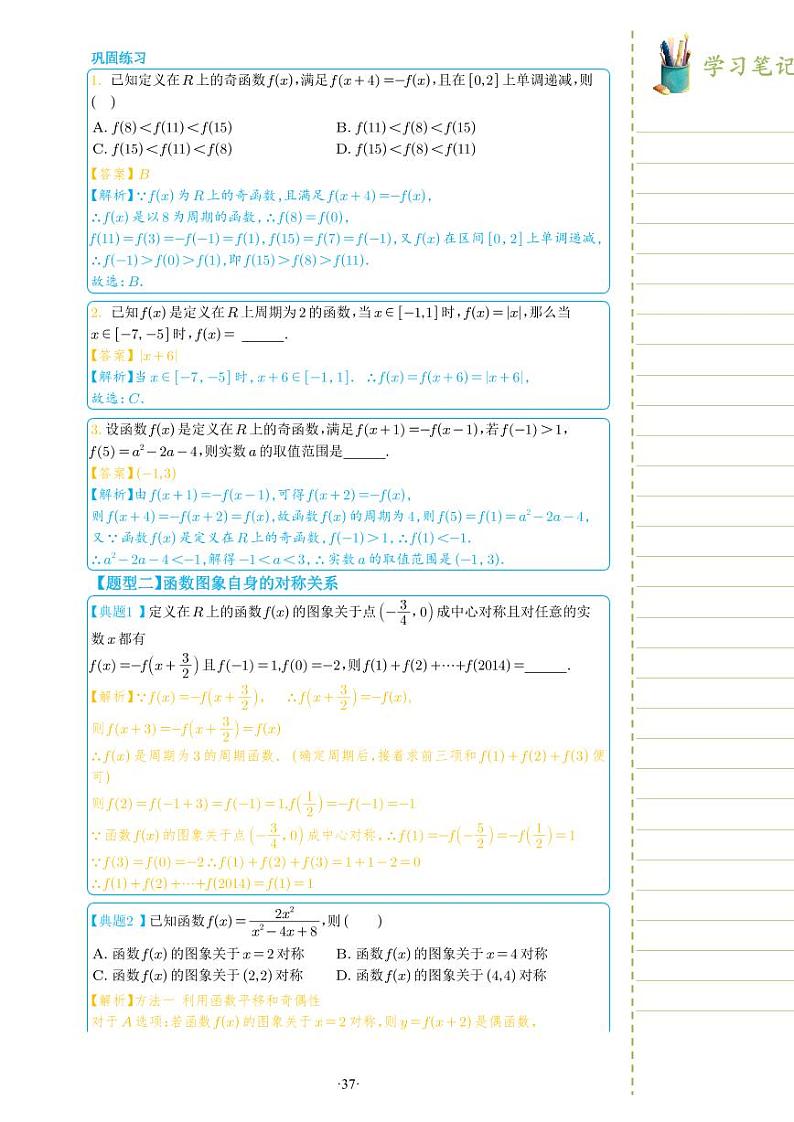 学习笔记
巩固练习
1. 已知定义在 R 上的奇函数 f(x),满足 f(x+4)=-f(x),且在 [0,2] 上单调递减,则
( )
A. f(8)<f(11)<f(15) B. f(11)<f(8)<f(15)
C. f(15)<f(11)<f(8) D. f(15)<f(8)<f(11)
【答案】B
【解析】∵f(x) 为 R 上的奇函数,且满足 f(x+4)=-f(x),
∴f(x) 是以 8 为周期的函数,∴f(8)=f(0),
f(11)=f(3)=-f(-1)=f(1),f(15)=f(7)=f(-1),又 f(x) 在区间 [0,2] 上单调递减,
∴f(-1)>f(0)>f(1),即 f(15)>f(8)>f(11).
故选:B.
2. 已知 f(x) 是定义在 R 上周期为 2 的函数,当 x∈[-1,1] 时,f(x)=|x|,那么当
x∈[-7,-5] 时,f(x)= ______.
【答案】|x+6|
【解析】当 x∈[-7,-5] 时,x+6∈[-1,1]. ∴f(x)=f(x+6)=|x+6|,
故选:C.
3. 设函数 f(x) 是定义在 R 上的奇函数,满足 f(x+1)=-f(x-1),若 f(-1)>1,
f(5)=a²-2a-4,则实数 a 的取值范围是______.
【答案】(-1,3)
【解析】由 f(x+1)=-f(x-1),可得 f(x+2)=-f(x),
则 f(x+4)=-f(x+2)=f(x),故函数 f(x) 的周期为 4,则 f(5)=f(1)=a²-2a-4,
又∵函数 f(x) 是定义在 R 上的奇函数,f(-1)>1,∴f(1)<-1.
∴a²-2a-4<-1,解得 -1<a<3,∴实数 a 的取值范围是 (-1,3).
【题型二】函数图象自身的对称关系
【典题1】定义在 R 上的函数 f(x) 的图象关于点 (-3/4,0) 成中心对称且对任意的实
数 x 都有
f(x)=-f(x+3/2) 且 f(-1)=1,f(0)=-2,则 f(1)+f(2)+⋯+f(2014)=______.
【解析】∵f(x)=-f(x+3/2), ∴f(x+3/2)=-f(x),
则 f(x+3)=-f(x+3/2)=f(x)
∴f(x) 是周期为 3 的周期函数. (确定周期后,接着求前三项和 f(1)+f(2)+f(3) 便
可)
则 f(2)=f(-1+3)=f(-1)=1,f(1/2)=-f(-1)=-1
∵函数 f(x) 的图象关于点 (-3/4,0) 成中心对称,∴f(1)=-f(-5/2)=-f(1/2)=1
∵f(3)=f(0)=-2∴f(1)+f(2)+f(3)=1+1-2=0
∴f(1)+f(2)+⋯+f(2014)=f(1)=1
【典题2】已知函数 f(x)=2x²/(x²-4x+8),则( )
A. 函数 f(x) 的图象关于 x=2 对称 B. 函数 f(x) 的图象关于 x=4 对称
C. 函数 f(x) 的图象关于 (2,2) 对称 D. 函数 f(x) 的图象关于 (4,4) 对称
【解析】方法一 利用函数平移和奇偶性
对于 A 选项:若函数 f(x) 的图象关于 x=2 对称,则 y=f(x+2) 是偶函数,
·37·